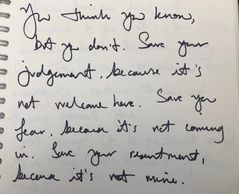 You think you know,
but you don't. Save your
judgement, because it's
not welcome here. Save your
fear, because it's not coming
in. Save your resentment,
because it's not mine.